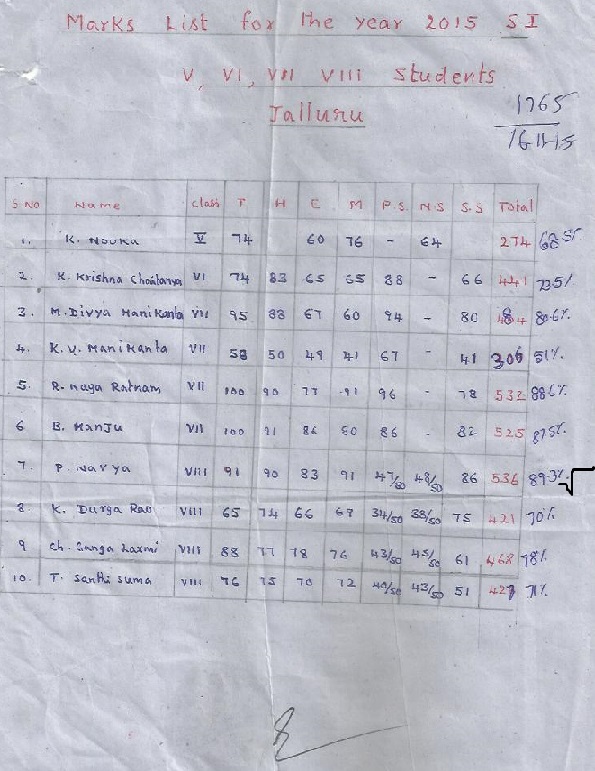 Marks List for the year 2015 SI
V, VI, VII VIII Students
Jalluru
1765
16-11-15
S.No Name Class T H E M P.S. N.S S.S Total
1. K. Nouka V 74 60 76 - 64 274 68.5%
2. K. Krishna Chaitanya VI 74 83 65 65 88 - 66 441 73.5%
3. M. Divya Manikanta VII 95 88 67 60 94 - 80 484 80.6%
4. K. V. Manikanta VII 58 50 49 41 67 - 41 306 51%
5. R. Naga Ratnam VII 100 90 77 91 96 - 78 532 88.6%
6 B. Manju VII 100 91 86 80 86 - 82 525 87.5%
7. P. Navya VIII 91 90 83 91 47/50 48/50 86 536 89.3%
8. K. Durga Rao VIII 65 74 66 69 34/50 38/50 75 421 70%
9 Ch. Ganga Laxmi VIII 88 77 78 76 43/50 45/50 61 468 78%
10. T. Santhi Suma VIII 76 75 70 72 40/50 43/50 51 427 71%